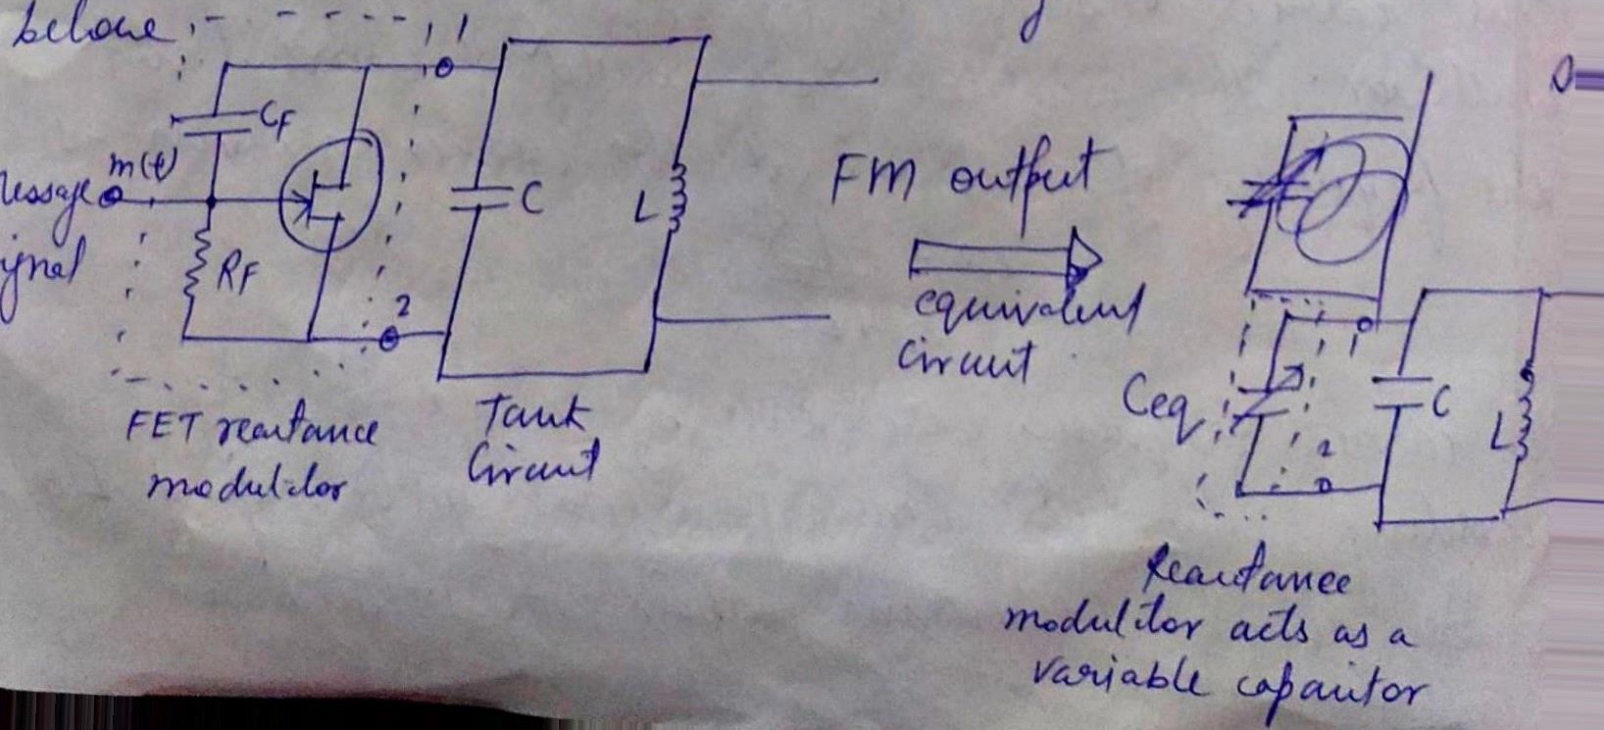 below
1
CF
m(t)
message
ignal
RF
2
C
L
FET reactance
modulator
Tank
Circuit
FM output
equivalent
Circuit
Ceq
1
2
C
L
Reactance
modulator acts as a
variable capacitor